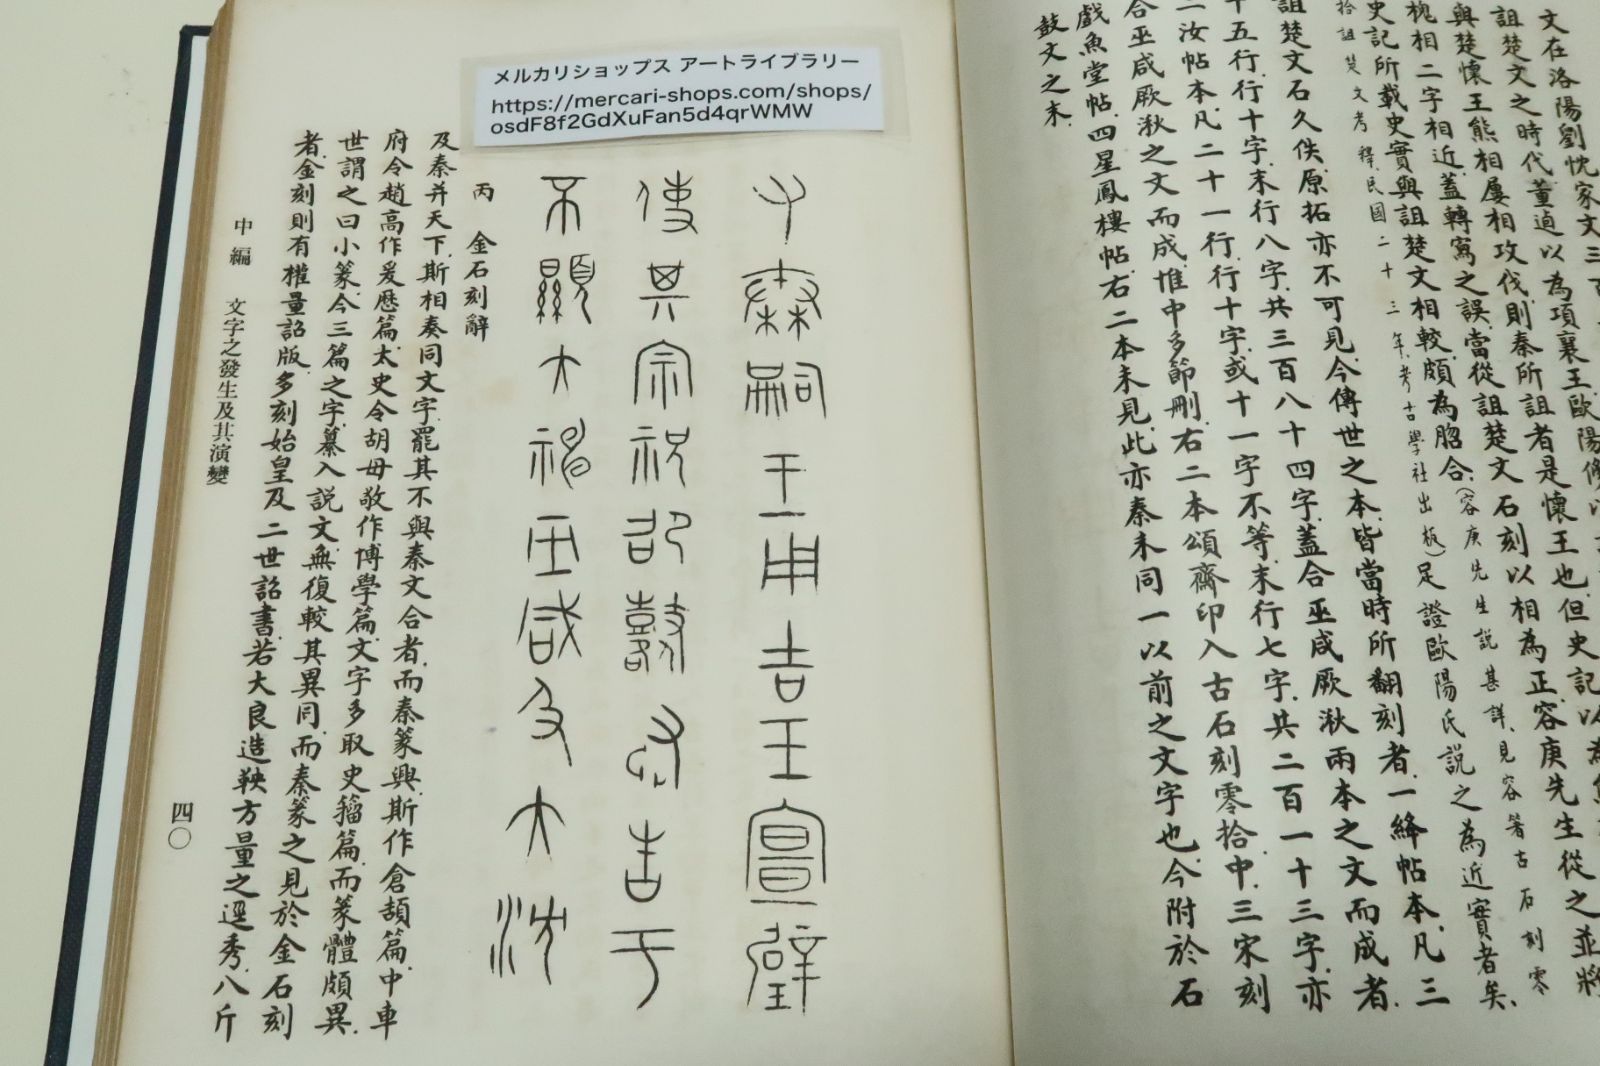 文在洛陽劉忱家文三百
詛楚文之時代董逌以為項襄王歐陽脩以
與楚懷王熊相屢相攻伐則秦所詛者是懷王也但史記以為熊
槐相二字相近蓋轉寫之誤當從詛楚文石刻以相為正容庚先生從之並將
史記所載史實與詛楚文相較頗為脗合(容庚先生說甚詳見容著古石刻零
拾詛楚文考釋民國二十三年考古學社出板)足證歐陽氏說之為近實者矣
詛楚文石久佚原拓亦不可見今傳世之本皆當時所翻刻者一絳帖本凡三
十五行行十字末行八字共三百八十四字蓋合巫咸厥湫兩本之文而成者
二汝帖本凡二十一行行十字或十一字不等末行七字共二百一十三字亦
合巫咸厥湫之文而成惟中多節刪右二本頌齋印入古石刻零拾中三宋刻
戲魚堂帖四星鳳樓帖右二本未見此亦秦未同一以前之文字也今附於石
鼓文之末
メルカリショップス アートライブラリー
https://mercari-shops.com/shops/
osdF8f2GdXuFan5d4qrWMW
又秦嗣王
用吉玉宣璧
使其宗祝邵鼛
告于
不顯大神巫咸
及大沈
丙 金石刻辭
及秦并天下斯相奏同文字罷其不與秦文合者而秦篆興斯作倉頡篇中車
府令趙高作爰歷篇太史令胡毋敬作博學篇文字多取史籀篇而篆體頗異
世謂之曰小篆今三篇之字纂入說文無復較其異同而秦篆之見於金石刻
者金刻則有權量詔版多刻始皇及二世詔書若大良造鞅方量之逕秀八斤
中編 文字之發生及其演變
四〇